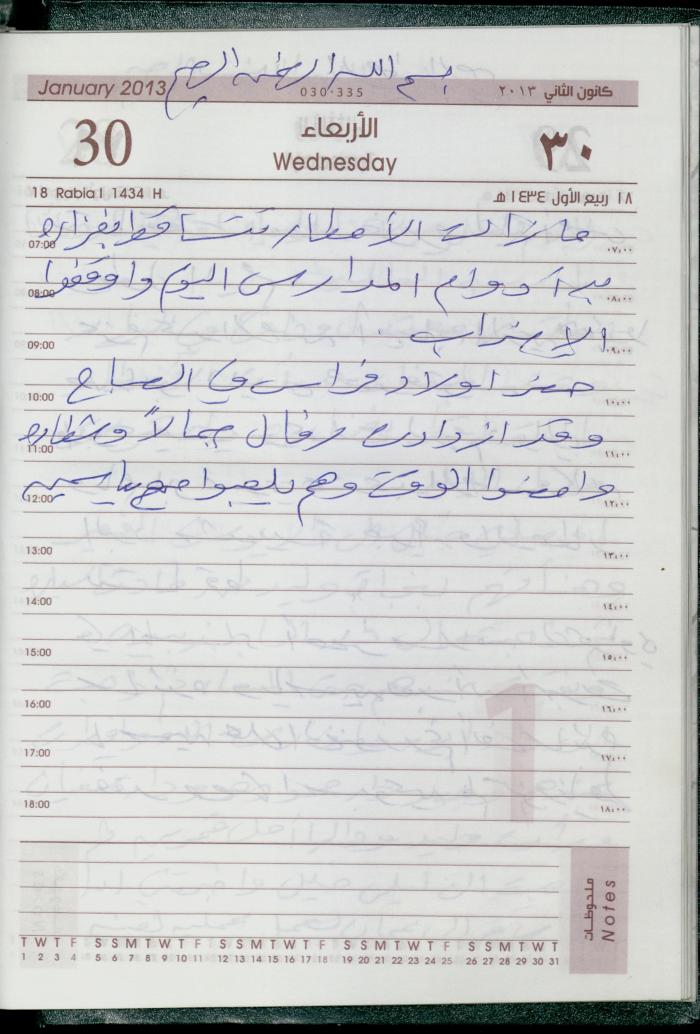 بسم الله الرحمن الرحيم
January 2013 030-335 كانون الثاني ٢٠١٣
30 الأربعاء ٣٠
Wednesday
18 Rabia I 1434 H ١٨ ربيع الأول ١٤٣٤ هـ
ما زالت الأمطار تتساقط بغزاره
07:00 ٠٧:٠٠
بدأ دوام المدارس اليوم واوقفوا
08:00 ٠٨:٠٠
الإضراب .
09:00 ٠٩:٠٠
حضر اولاد فراس في الصباح
10:00 ١٠:٠٠
وقد ازدادت رفال جمالاً وشطاره
11:00 ١١:٠٠
وامضوا الوقت وهم يلعبوا مع ياسمين
12:00 ١٢:٠٠
13:00 ١٣:٠٠
14:00 ١٤:٠٠
15:00 ١٥:٠٠
16:00 ١٦:٠٠
17:00 ١٧:٠٠
18:00 ١٨:٠٠
1
ملحوظات
Notes
T W T F S S M T W T F S S M T W T F S S M T W T F S S M T W T
1 2 3 4 5 6 7 8 9 10 11 12 13 14 15 16 17 18 19 20 21 22 23 24 25 26 27 28 29 30 31